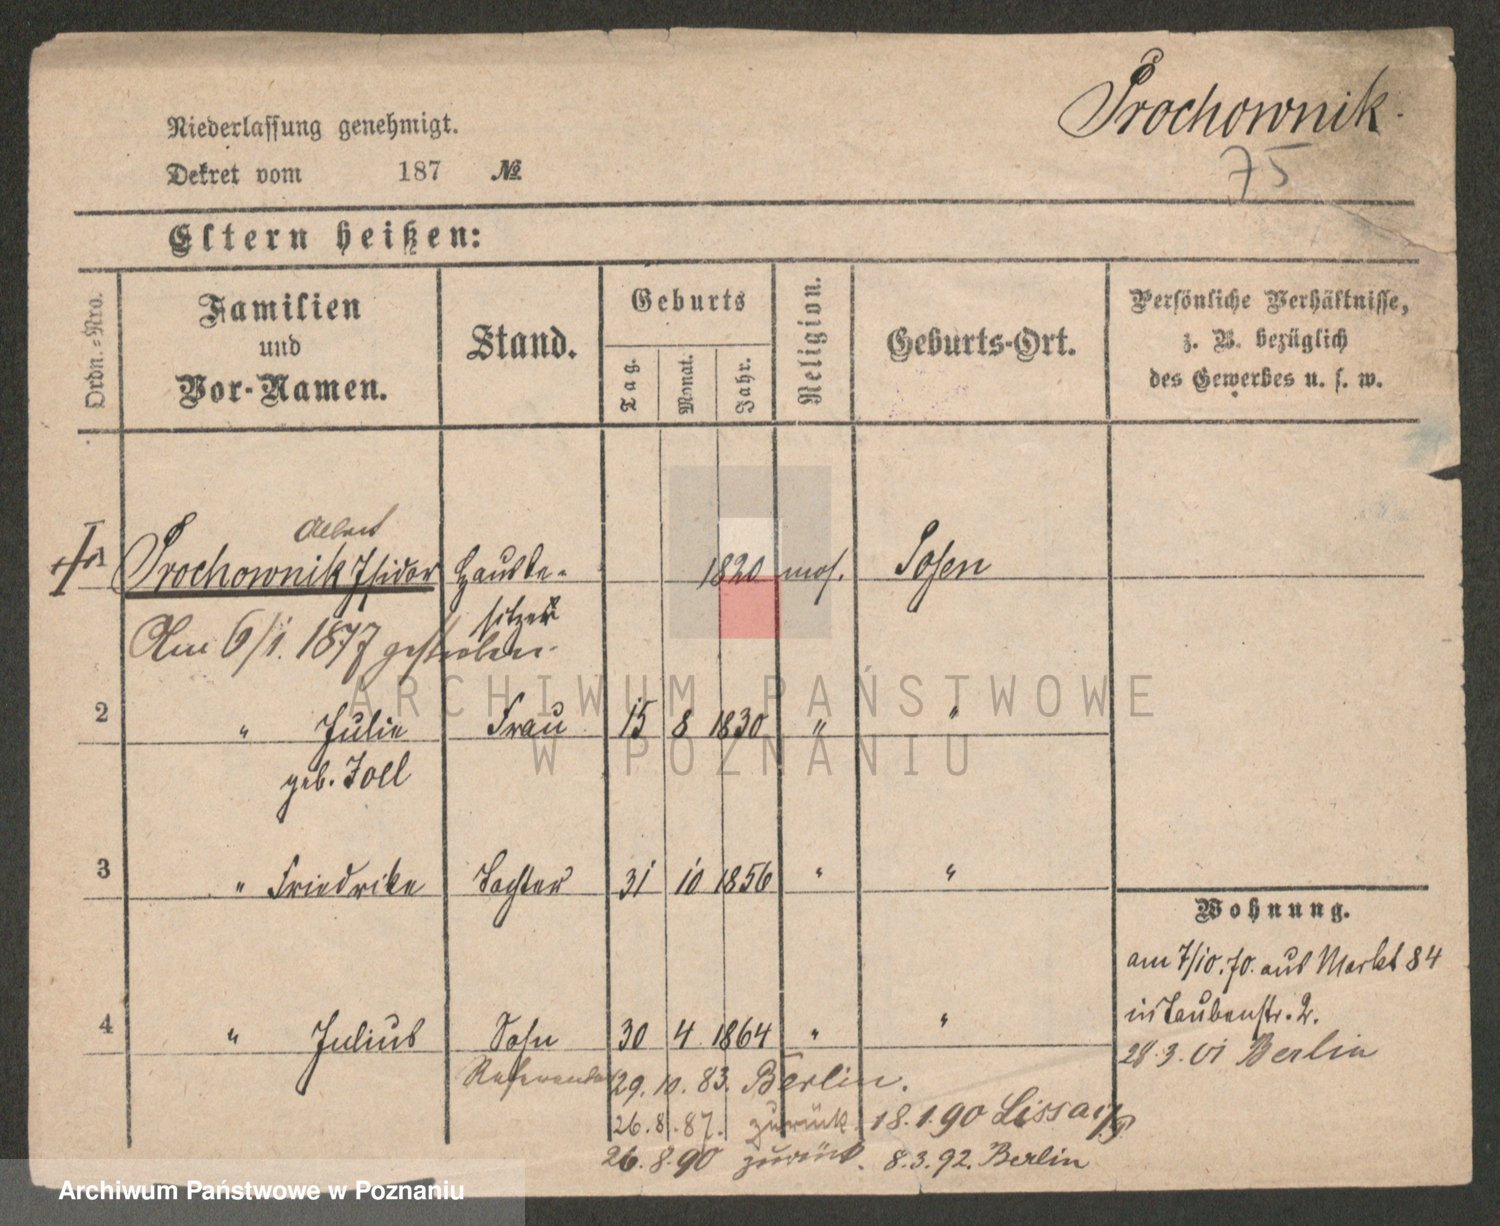 Prochownik.
75
Niederlassung genehmigt.
Dekret vom 187 №
Eltern heißen:
Ordn.-Nro.
Familien und Vor-Namen.
Stand.
Geburts
Tag. Monat. Jahr.
Religion.
Geburts-Ort.
Persönliche Verhältnisse,
z. B. bezüglich
des Gewerbes u. s. w.
Albert
1 Prochownik Isidor Hausbe- 1820 mos. Posen
sitzer
Am 6/1. 1877 gestorben.
2 " Julie Frau 15 8 1830 " "
geb. Zoll
3 " Friedrike Tochter 31 10 1856 " "
4 " Julius Sohn 30 4 1864 " "
Referendar 29. 10. 83. Berlin.
26. 8. 87. zurück. 18. 1. 90 Lissa i/P
26. 8. 90 zurück. 8. 3. 92. Berlin
Wohnung.
am 7/10. 70. aus Markt 84
in Taubenstr. 2.
28. 3. 01 Berlin
ARCHIWUM PAŃSTWOWE
W POZNANIU
Archiwum Państwowe w Poznaniu